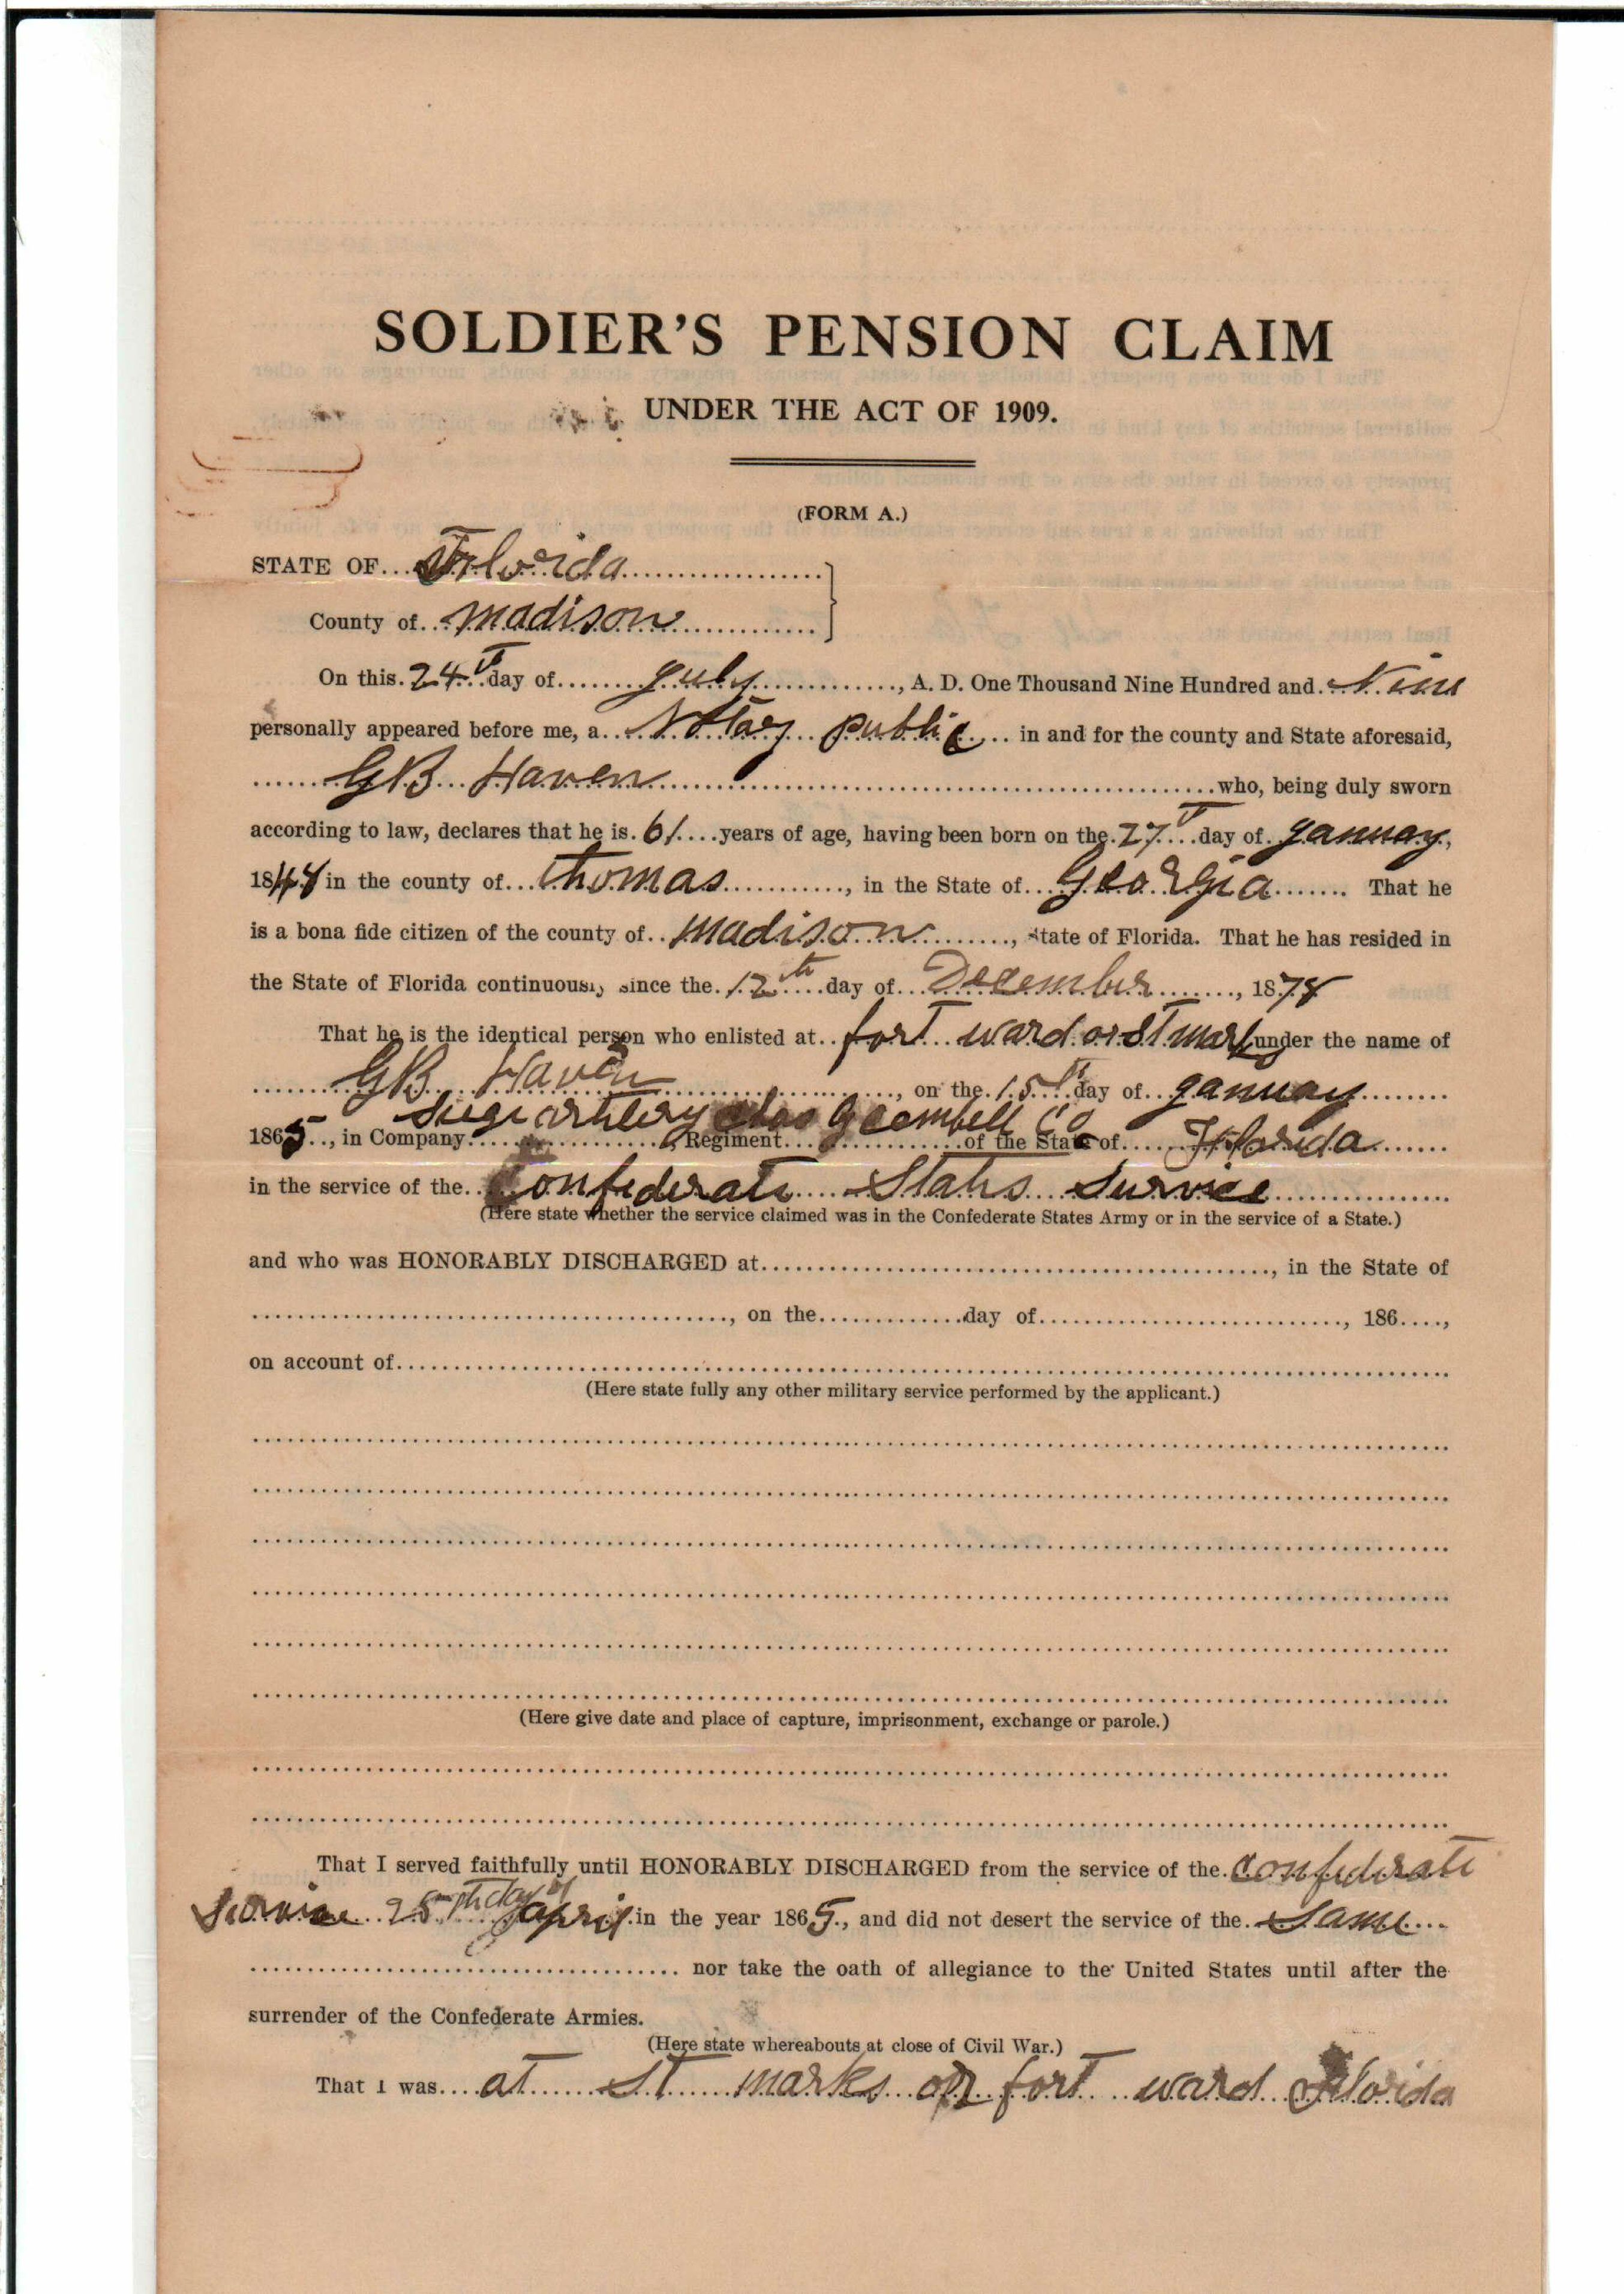 SOLDIER'S PENSION CLAIM
UNDER THE ACT OF 1909.
(FORM A.)
STATE OF Florida
County of madison
On this 24 day of July, A. D. One Thousand Nine Hundred and Nine
personally appeared before me, a Notary public in and for the county and State aforesaid,
GB Haven who, being duly sworn
according to law, declares that he is 61 years of age, having been born on the 27 day of January,
1848 in the county of thomas, in the State of Georgia That he
is a bona fide citizen of the county of madison, State of Florida. That he has resided in
the State of Florida continuously since the 12th day of December, 1878
That he is the identical person who enlisted at fort ward or St mark under the name of
GB Haven, on the 15th day of January
1865, in Company Siege artilery Regiment of the State of Florida
in the service of the Confederate States Service
(Here state whether the service claimed was in the Confederate States Army or in the service of a State.)
and who was HONORABLY DISCHARGED at, in the State of
, on the day of, 186,
on account of
(Here state fully any other military service performed by the applicant.)
(Here give date and place of capture, imprisonment, exchange or parole.)
That I served faithfully until HONORABLY DISCHARGED from the service of the Confederate
Service 25th day of april in the year 1865, and did not desert the service of the Same
nor take the oath of allegiance to the United States until after the
surrender of the Confederate Armies.
(Here state whereabouts at close of Civil War.)
That I was at St marks or fort ward Florida